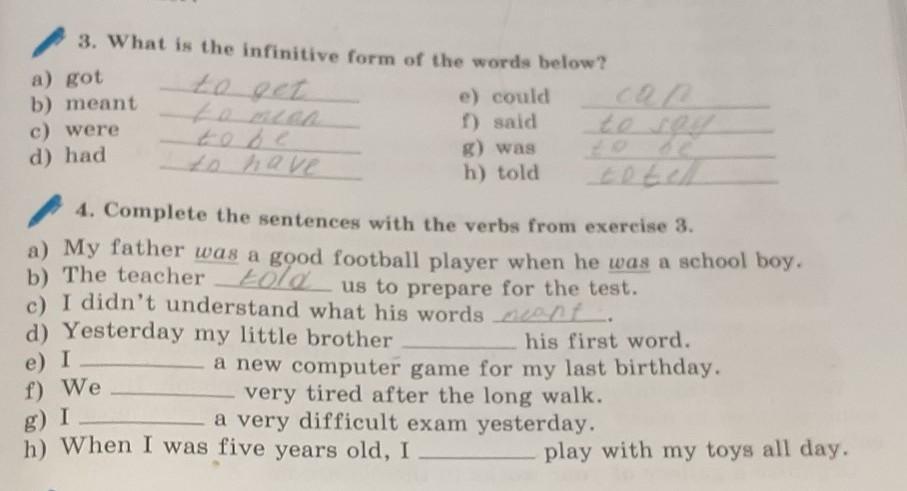 3. What is the infinitive form of the words below?
a) got to get e) could can
b) meant to mean f) said to say
c) were to be g) was to be
d) had to have h) told to tell
4. Complete the sentences with the verbs from exercise 3.
a) My father was a good football player when he was a school boy.
b) The teacher told us to prepare for the test.
c) I didn't understand what his words meant.
d) Yesterday my little brother ________ his first word.
e) I ________ a new computer game for my last birthday.
f) We ________ very tired after the long walk.
g) I ________ a very difficult exam yesterday.
h) When I was five years old, I ________ play with my toys all day.